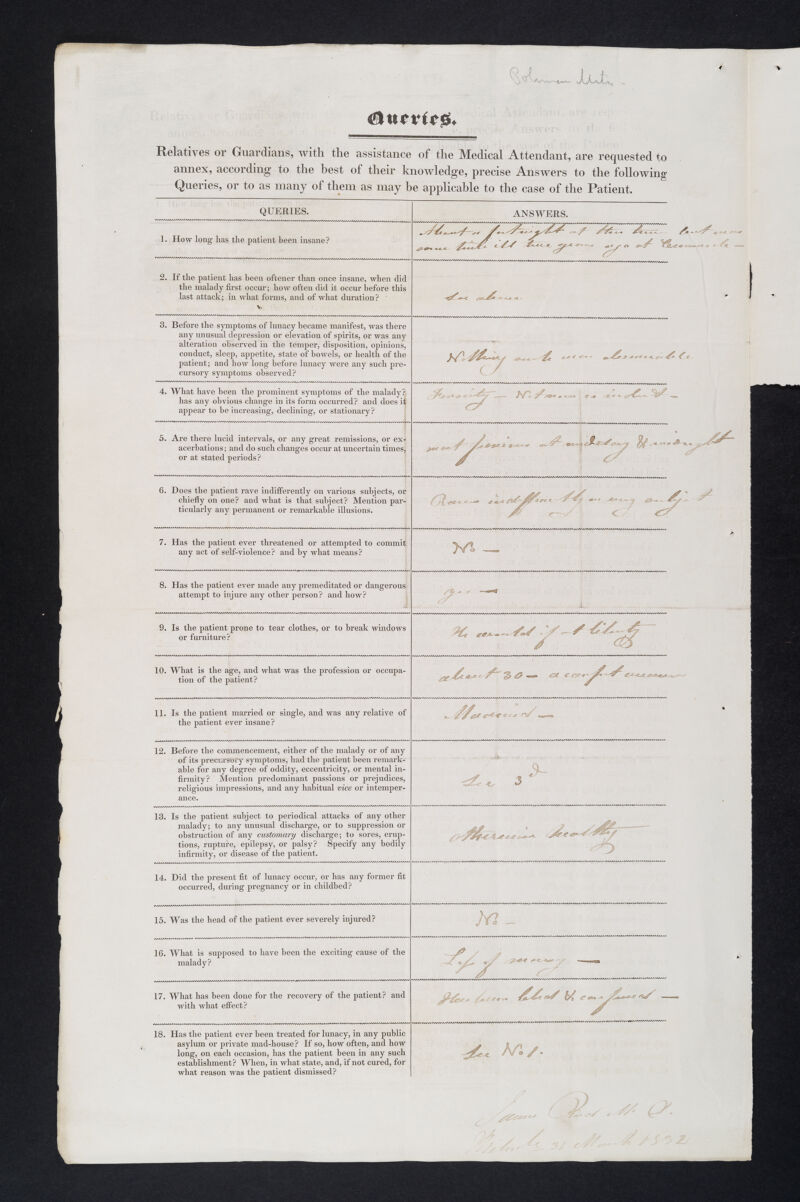 Queries.
Relatives or Guardians, with the assistance of the Medical Attendant, are requested to
annex, according to the best of their knowledge, precise Answers to the following
Queries, or to as many of them as may be applicable to the case of the Patient.
QUERIES.
ANSWERS.
1. How long has the patient been insane?
About a fortnight at this time but was
some time ill two years ago at
2. If the patient has been oftener than once insane, when did
the malady first occur; how often did it occur before this
last attack; in what forms, and of what duration?
See above
3. Before the symptoms of lunacy became manifest, was there
any unusual depression or elevation of spirits, or was any
alteration observed in the temper, disposition, opinions,
conduct, sleep, appetite, state of bowels, or health of the
patient; and how long before lunacy were any such pre-
cursory symptoms observed?
Nothing
4. What have been the prominent symptoms of the malady?
has any obvious change in its form occurred? and does it
appear to be increasing, declining, or stationary?
Ferocity —
5. Are there lucid intervals, or any great remissions, or ex-
acerbations; and do such changes occur at uncertain times,
or at stated periods?
most furious at midday & midnight
6. Does the patient rave indifferently on various subjects, or
chiefly on one? and what is that subject? Mention par-
ticularly any permanent or remarkable illusions.
Raves indifferently on any subject
7. Has the patient ever threatened or attempted to commit
any act of self-violence? and by what means?
No —
8. Has the patient ever made any premeditated or dangerous
attempt to injure any other person? and how?
yes —
9. Is the patient prone to tear clothes, or to break windows
or furniture?
He would if at liberty
10. What is the age, and what was the profession or occupa-
tion of the patient?
about 30 — a
11. Is the patient married or single, and was any relative of
the patient ever insane?
Married —
12. Before the commencement, either of the malady or of any
of its precursory symptoms, had the patient been remark-
able for any degree of oddity, eccentricity, or mental in-
firmity? Mention predominant passions or prejudices,
religious impressions, and any habitual vice or intemper-
ance.
See 3d
13. Is the patient subject to periodical attacks of any other
malady; to any unusual discharge, or to suppression or
obstruction of any customary discharge; to sores, erup-
tions, rupture, epilepsy, or palsy? Specify any bodily
infirmity, or disease of the patient.
otherwise healthy
14. Did the present fit of lunacy occur, or has any former fit
occurred, during pregnancy or in childbed?
15. Was the head of the patient ever severely injured?
No —
16. What is supposed to have been the exciting cause of the
malady?
Loss of money —
17. What has been done for the recovery of the patient? and
with what effect?
Has been bled & confined —
18. Has the patient ever been treated for lunacy, in any public
asylum or private mad-house? If so, how often, and how
long, on each occasion, has the patient been in any such
establishment? When, in what state, and, if not cured, for
what reason was the patient dismissed?
See No 1.
James M. D.
31 March 1832